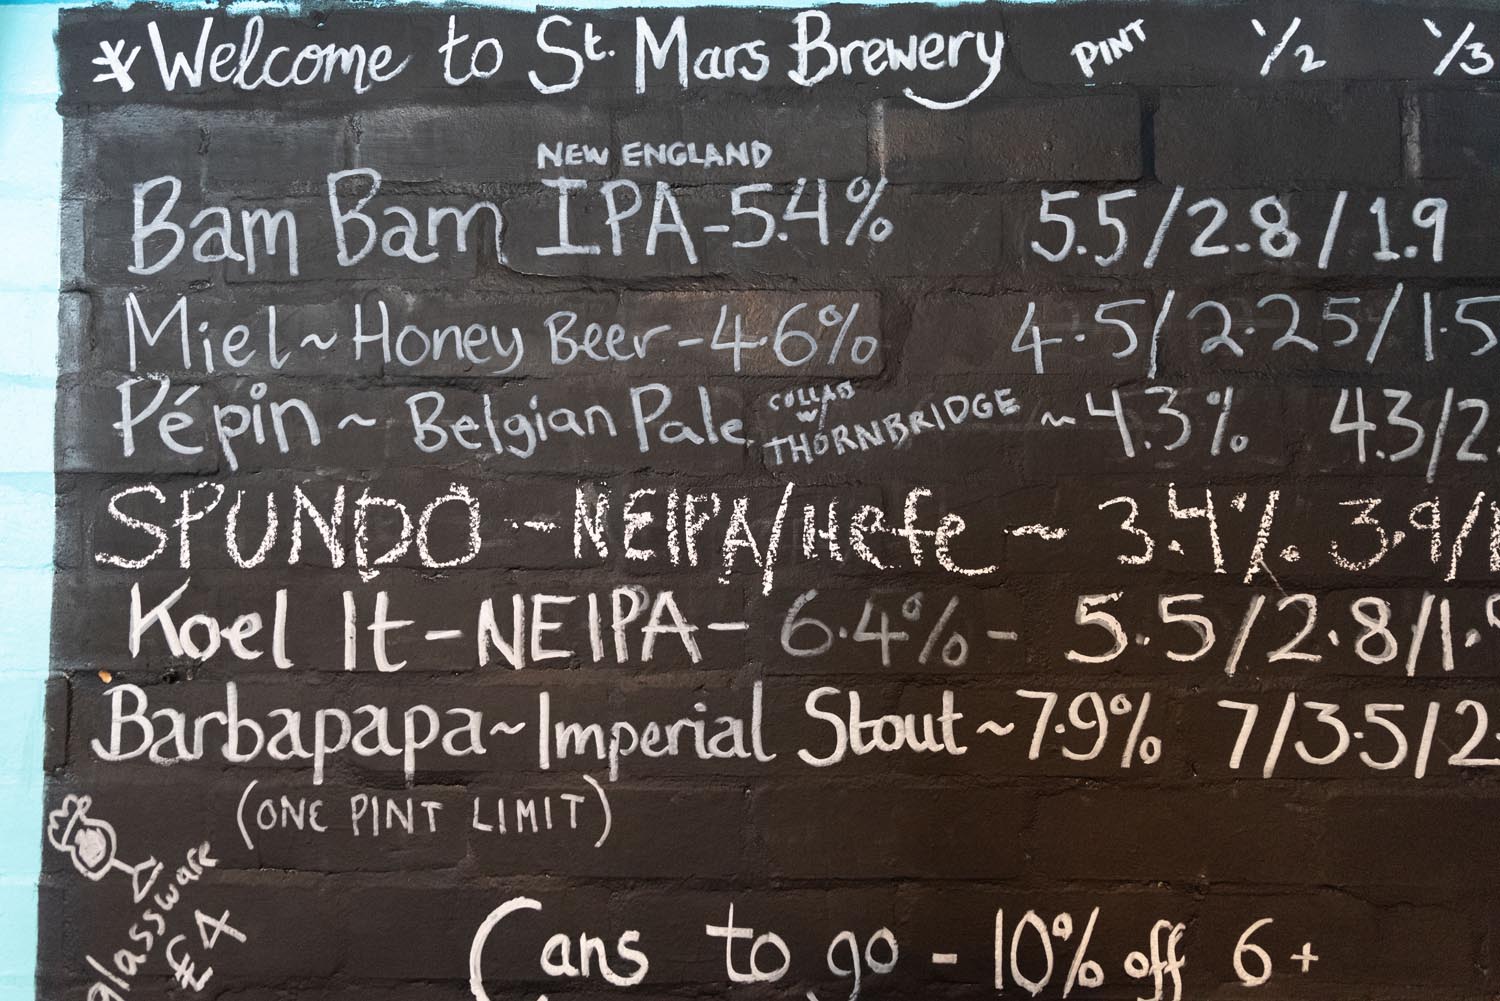 *Welcome to St. Mars Brewery PINT 1/2 1/3
NEW ENGLAND
Bam Bam IPA-5.4% 5.5/2.8/1.9
Miel~Honey Beer-4.6% 4.5/2.25/1.5
Pépin~Belgian Pale COLLAB W/ THORNBRIDGE ~4.3% 4.3/2.
SPUNDO ~NEIPA/Hefe~3.4% 3.9/
Koel It-NEIPA-6.4%- 5.5/2.8/1.
Barbapapa~Imperial Stout~7.9% 7/3.5/2.
(ONE PINT LIMIT)
glassware
£4
Cans to go - 10% off 6+